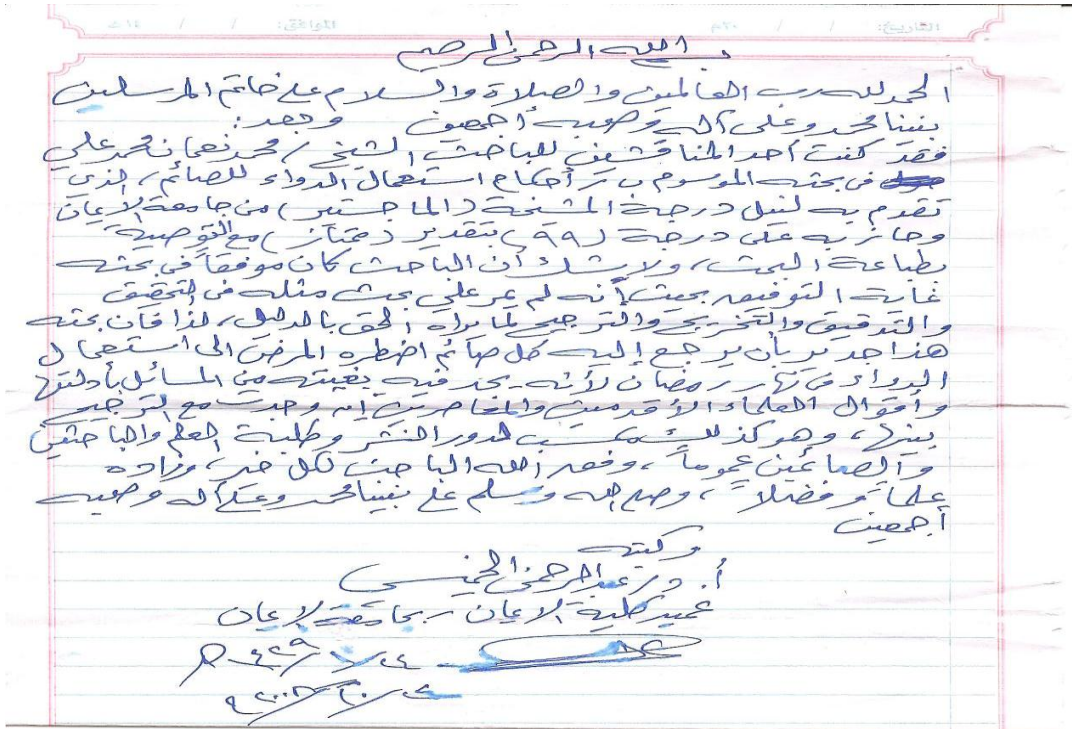 بسم الله الرحمن الرحيم
الحمد لله رب العالمين والصلاة والسلام على خاتم المرسلين
نبينا محمد وعلى آله وصحبه أجمعين وبعد:
فقد كنت أحد المناقشين للباحث الشيخ / محمد نعمان محمد علي
في بحثه الموسوم بـ (أحكام استعمال الدواء للصائم) الذي
تقدم به لنيل درجة المشيخة (الماجستير) من جامعة الإيمان
وحاز به على درجة (٩٩) بتقدير (ممتاز) مع التوصية
بطباعة البحث، ولا شك أن الباحث كان موفقاً في بحثه
غاية التوفيق بحيث أنه لم يمر علي بحث مثله في التحقيق
والتدقيق والتخريج والترجيح لما يراه الحق بالدليل، لذا فإن بحثه
هذا جدير بأن يرجع إليه كل صائم اضطره المرض الى استعمال
الدواء في نهار رمضان لأنه يجد فيه بغيته من المسائل بأدلتها
وأقوال العلماء الأقدمين والمعاصرين إن وجدت مع الترجيح
بينها، وهو كذلك مكسب لدور النشر وطلبة العلم والباحثين
والصائمين عموماً، وفق الله الباحث لكل خير، وزاده
علماً وفضلاً، وصلى الله وسلم على نبينا محمد وعلى آله وصحبه
أجمعين
وكتبه
أ. د/ عبد الرحمن الخميسي
عميد كلية الإيمان بجامعة الإيمان